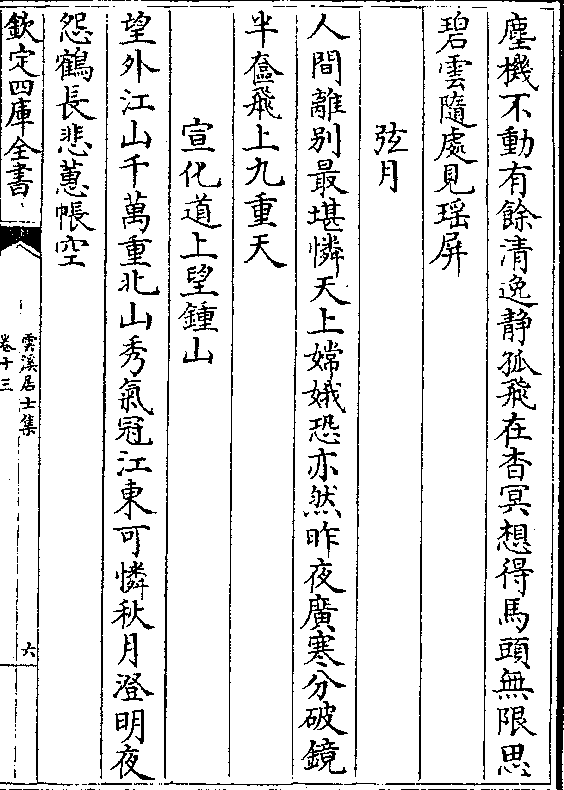 塵機不動有餘清逸静孤飛在杳冥想得馬頭無限思
碧雲隨處見瑶屏
弦月
人間離别最堪憐天上嫦娥恐亦然昨夜廣寒分破鏡
半奩飛上九重天
宣化道上望鍾山
望外江山千萬重北山秀氣冠江東可憐秋月澄明夜
怨鶴長悲蕙帳空
欽定四庫全書
雲溪居士集
卷十三
六